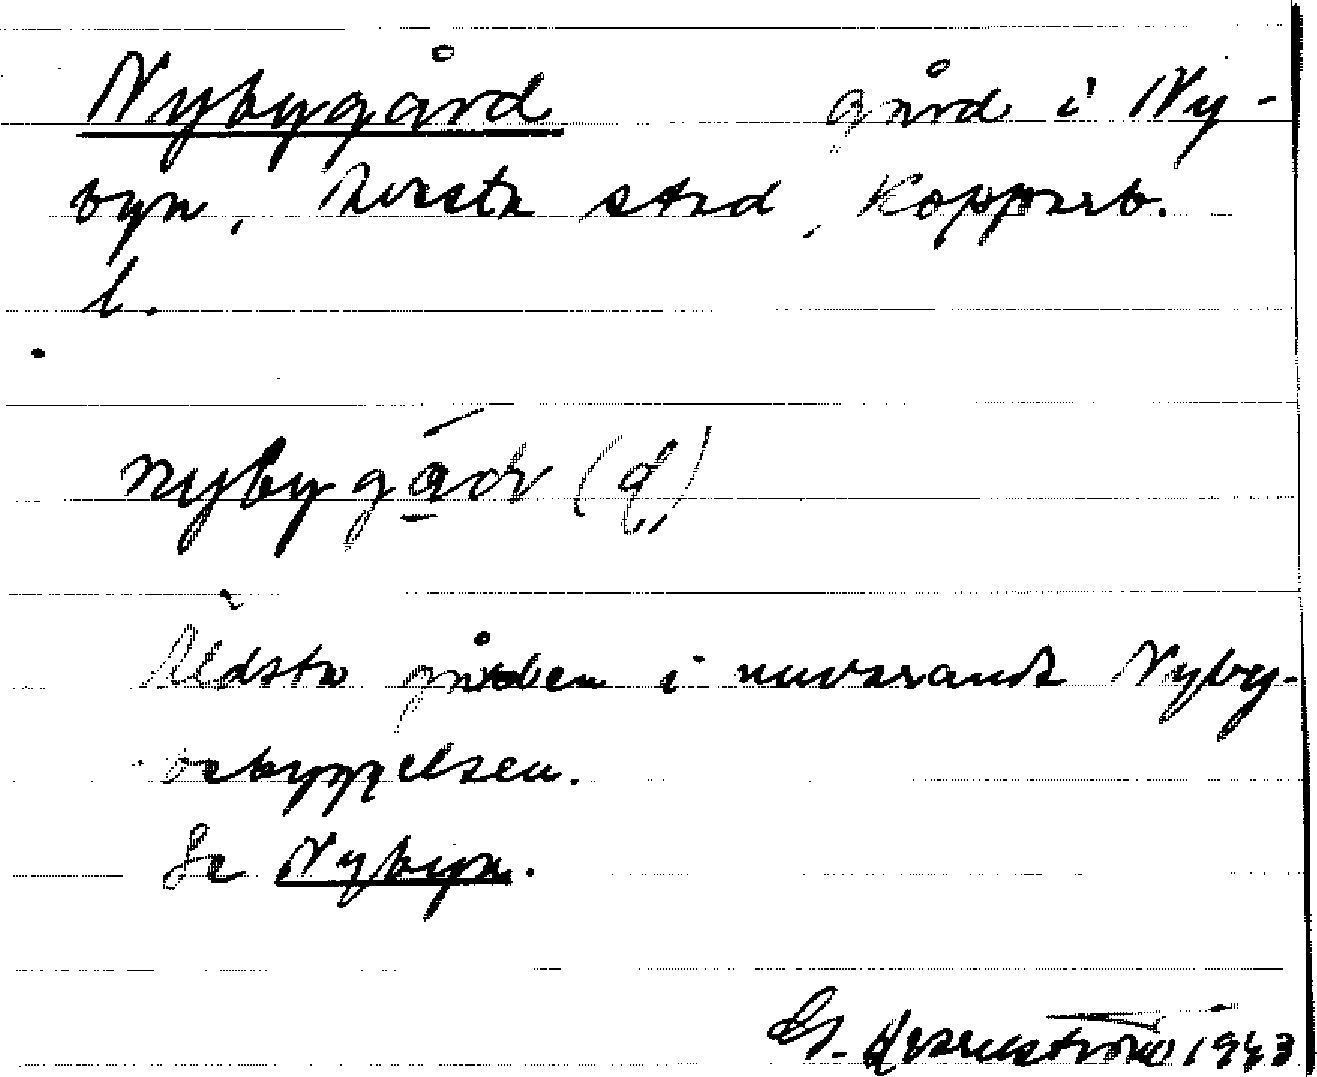 Nybygård gård i Ny-
byn, Avesta stad, Kopparb.
l.
nybygådr (q)
Äldsta gården i nuvarande Nyby-
bebyggelsen.
Se Nybyn.
G. 1943